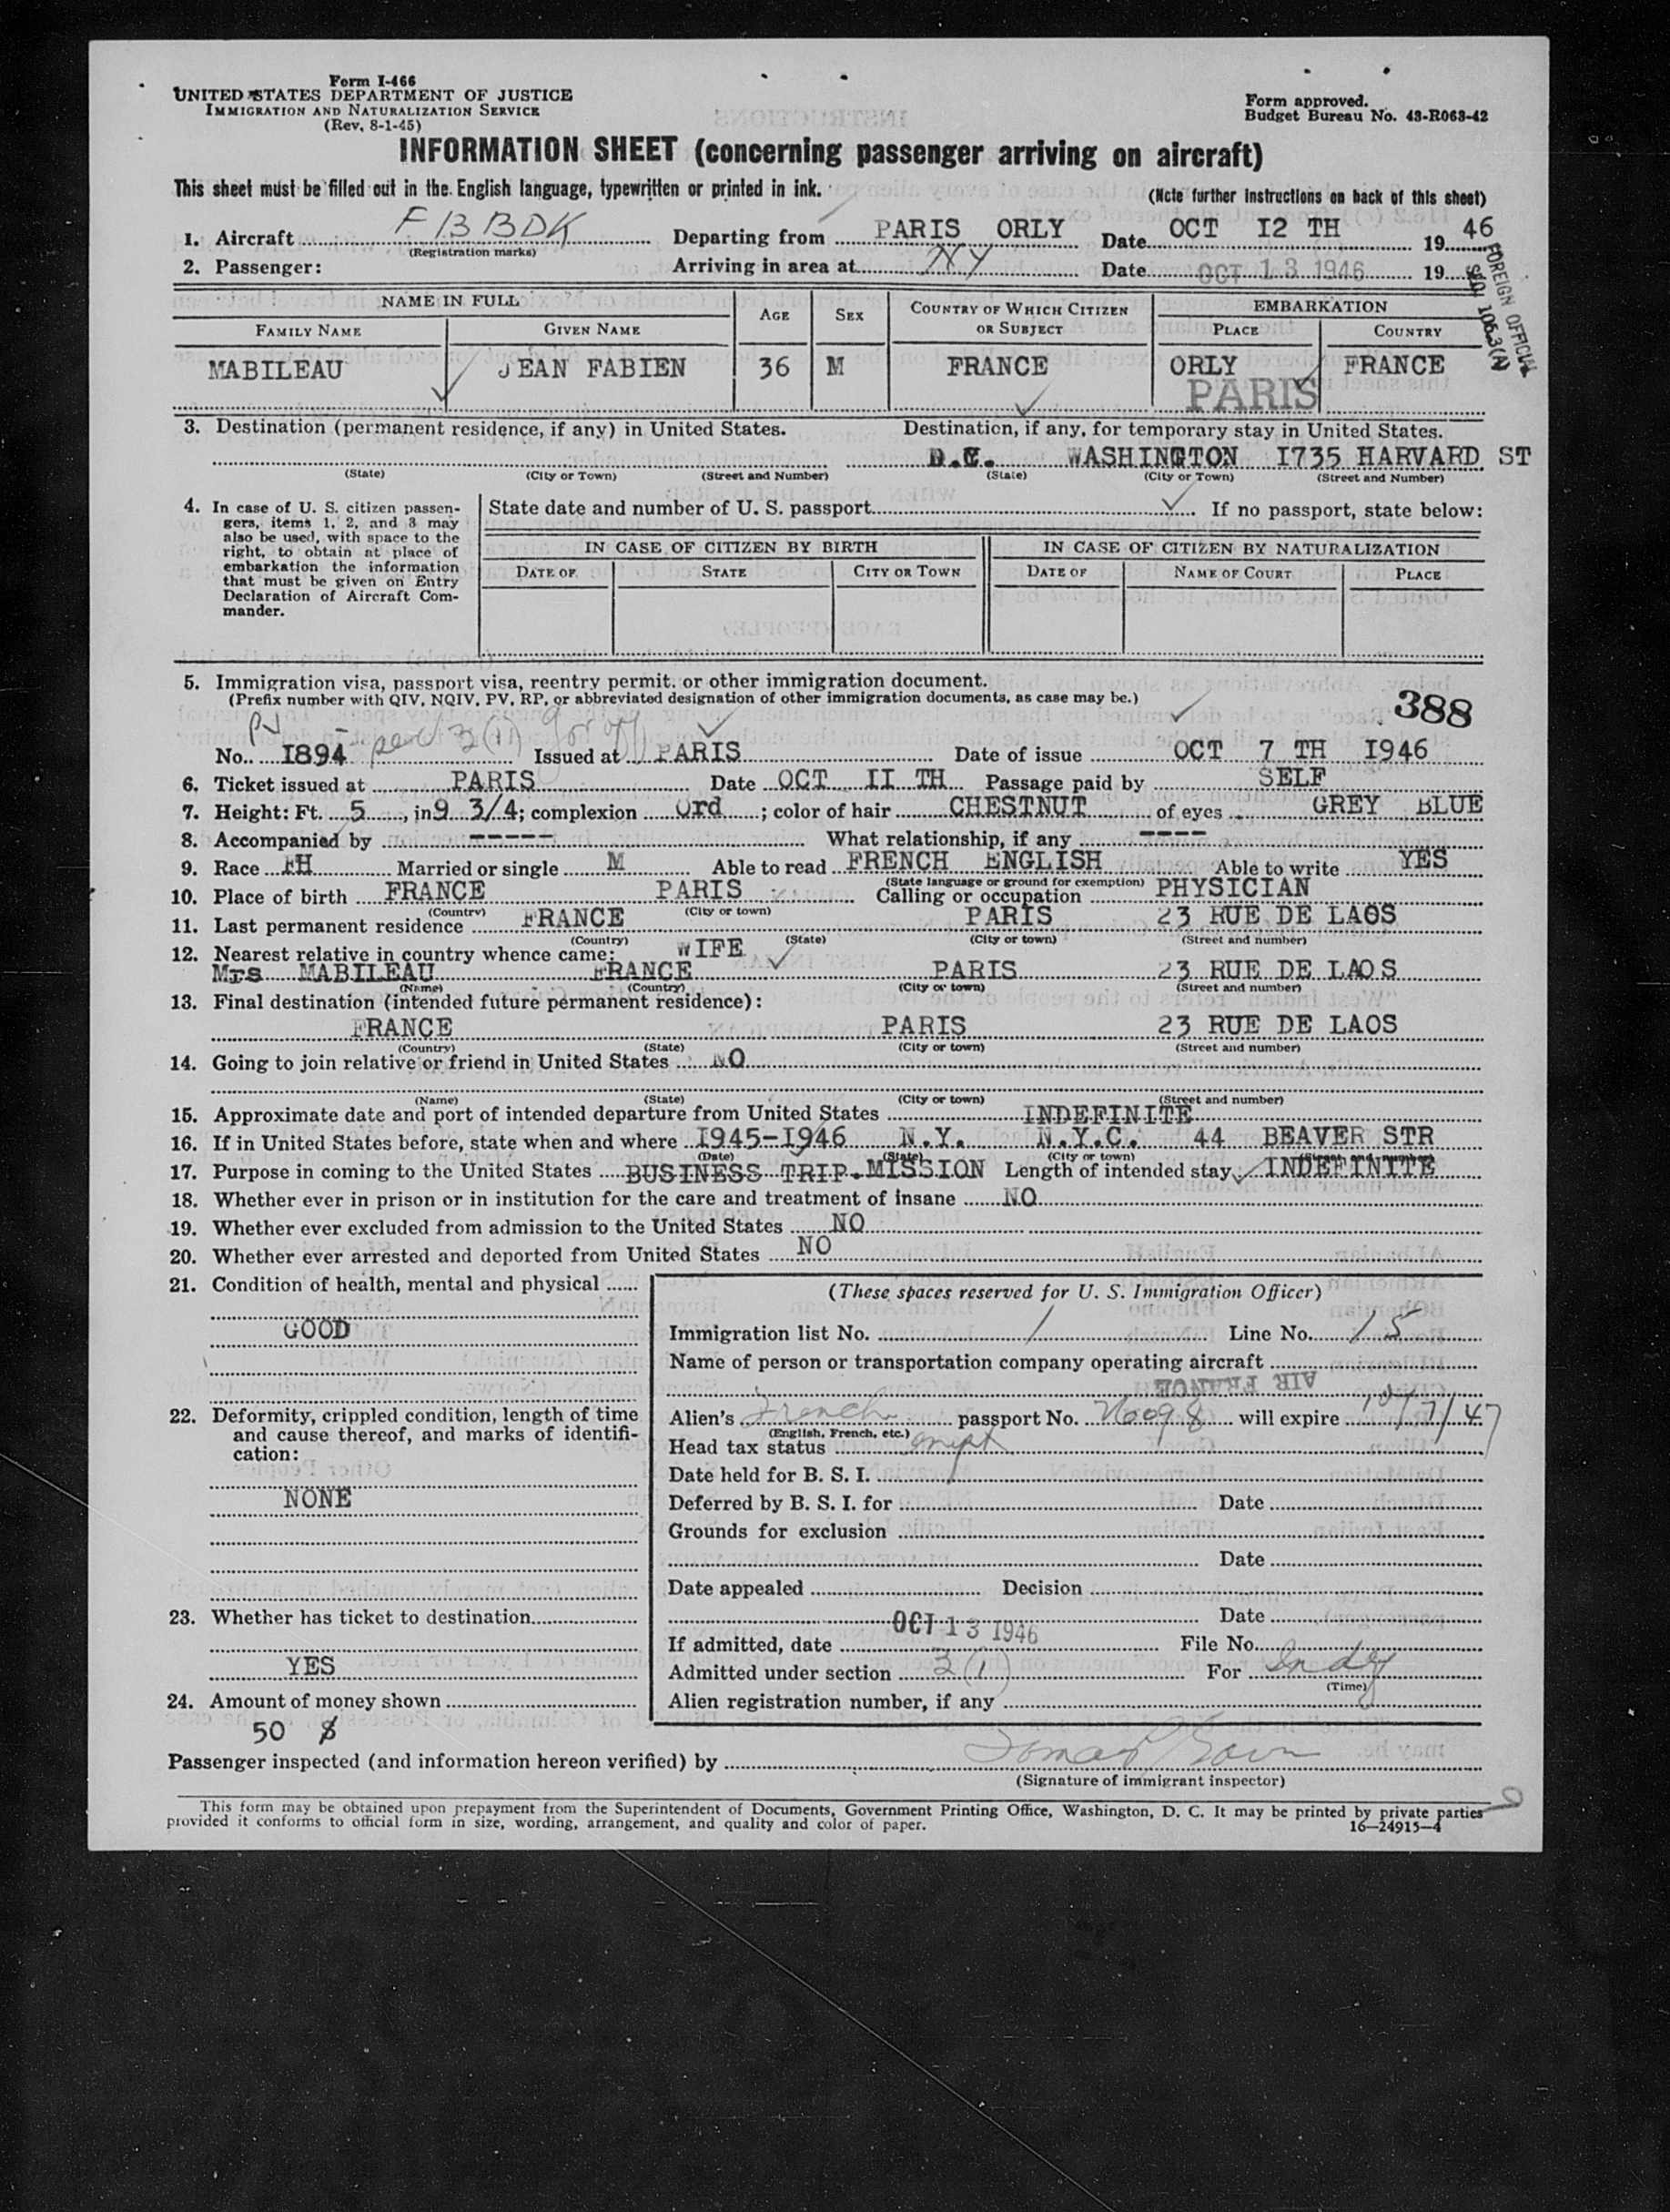 Form I-466
UNITED STATES DEPARTMENT OF JUSTICE
IMMIGRATION AND NATURALIZATION SERVICE
(Rev. 8-1-45)
Form approved.
Budget Bureau No. 43-R063-42
INFORMATION SHEET (concerning passenger arriving on aircraft)
This sheet must be filled out in the English language, typewritten or printed in ink.
(Note further instructions on back of this sheet)
1. Aircraft F B B D K Departing from PARIS ORLY Date OCT I2 TH 1946
(Registration marks)
2. Passenger: Arriving in area at NY Date OCT 13 1946 19
FOREIGN OFFICIAL
NAME IN FULL AGE SEX COUNTRY OF WHICH CITIZEN OR SUBJECT EMBARKATION
FAMILY NAME GIVEN NAME PLACE COUNTRY
MABILEAU JEAN FABIEN 36 M FRANCE ORLY FRANCE
PARIS
3. Destination (permanent residence, if any) in United States. Destination, if any, for temporary stay in United States.
D.C. WASHINGTON I735 HARVARD ST
(State) (City or Town) (Street and Number) (State) (City or Town) (Street and Number)
4. In case of U. S. citizen passengers, items 1, 2, and 3 may also be used, with space to the right, to obtain at place of embarkation the information that must be given on Entry Declaration of Aircraft Commander.
State date and number of U. S. passport If no passport, state below:
IN CASE OF CITIZEN BY BIRTH IN CASE OF CITIZEN BY NATURALIZATION
DATE OF STATE CITY OR TOWN DATE OF NAME OF COURT PLACE
5. Immigration visa, passport visa, reentry permit, or other immigration document.
(Prefix number with QIV, NQIV, PV, RP, or abbreviated designation of other immigration documents, as case may be.)
388
PV
No. I894 3(1) Issued at PARIS Date of issue OCT 7 TH I946
6. Ticket issued at PARIS Date OCT II TH Passage paid by SELF
7. Height: Ft. 5, in 9 3/4; complexion Ord; color of hair CHESTNUT of eyes GREY BLUE
8. Accompanied by ----- What relationship, if any ----
9. Race FH Married or single M Able to read FRENCH ENGLISH Able to write YES
(State language or ground for exemption)
10. Place of birth FRANCE PARIS Calling or occupation PHYSICIAN
(Country) (City or town)
11. Last permanent residence FRANCE PARIS 23 RUE DE LAOS
(Country) (State) (City or town) (Street and number)
12. Nearest relative in country whence came: WIFE
Mrs MABILEAU FRANCE PARIS 23 RUE DE LAOS
(Name) (Country) (City or town) (Street and number)
13. Final destination (intended future permanent residence):
FRANCE PARIS 23 RUE DE LAOS
(Country) (State) (City or town) (Street and number)
14. Going to join relative or friend in United States NO
(Name) (State) (City or town) (Street and number)
15. Approximate date and port of intended departure from United States INDEFINITE
16. If in United States before, state when and where I945-I946 N.Y. N.Y.C. 44 BEAVER STR
(Date) (State) (City or town) (Street and number)
17. Purpose in coming to the United States BUSINESS TRIP.MISSION Length of intended stay INDEFINITE
18. Whether ever in prison or in institution for the care and treatment of insane NO
19. Whether ever excluded from admission to the United States NO
20. Whether ever arrested and deported from United States NO
21. Condition of health, mental and physical
GOOD
22. Deformity, crippled condition, length of time and cause thereof, and marks of identification:
NONE
23. Whether has ticket to destination
YES
24. Amount of money shown
50 $
(These spaces reserved for U. S. Immigration Officer)
Immigration list No. 1 Line No. 15
Name of person or transportation company operating aircraft
AIR FRANCE
Alien's French passport No. 26098 will expire 10/7/47
(English, French, etc.)
Head tax status
Date held for B. S. I.
Deferred by B. S. I. for Date
Grounds for exclusion
Date
Date appealed Decision
Date
If admitted, date OCT 13 1946 File No.
Admitted under section 3(1) For Indef
(Time)
Alien registration number, if any
Passenger inspected (and information hereon verified) by
(Signature of immigrant inspector)
This form may be obtained upon prepayment from the Superintendent of Documents, Government Printing Office, Washington, D. C. It may be printed by private parties
provided it conforms to official form in size, wording, arrangement, and quality and color of paper.
16—24915-4